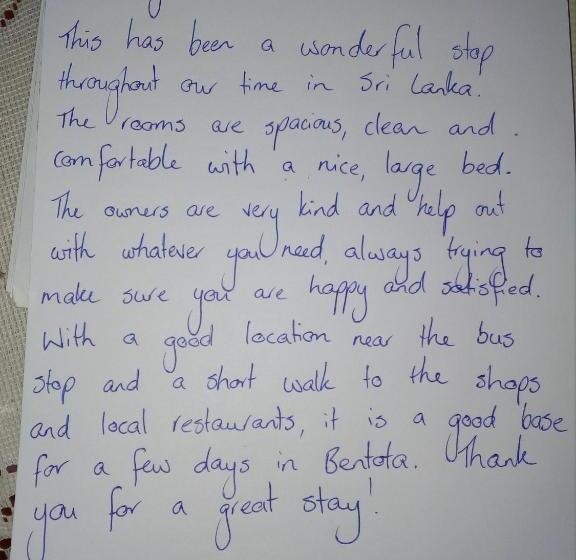 This has been a wonderful stop
throughout our time in Sri Lanka.
The rooms are spacious, clean and
comfortable with a nice, large bed.
The owners are very kind and help out
with whatever you need, always trying to
make sure you are happy and satisfied.
With a good location near the bus
stop and a short walk to the shops
and local restaurants, it is a good base
for a few days in Bentota. Thank
you for a great stay!